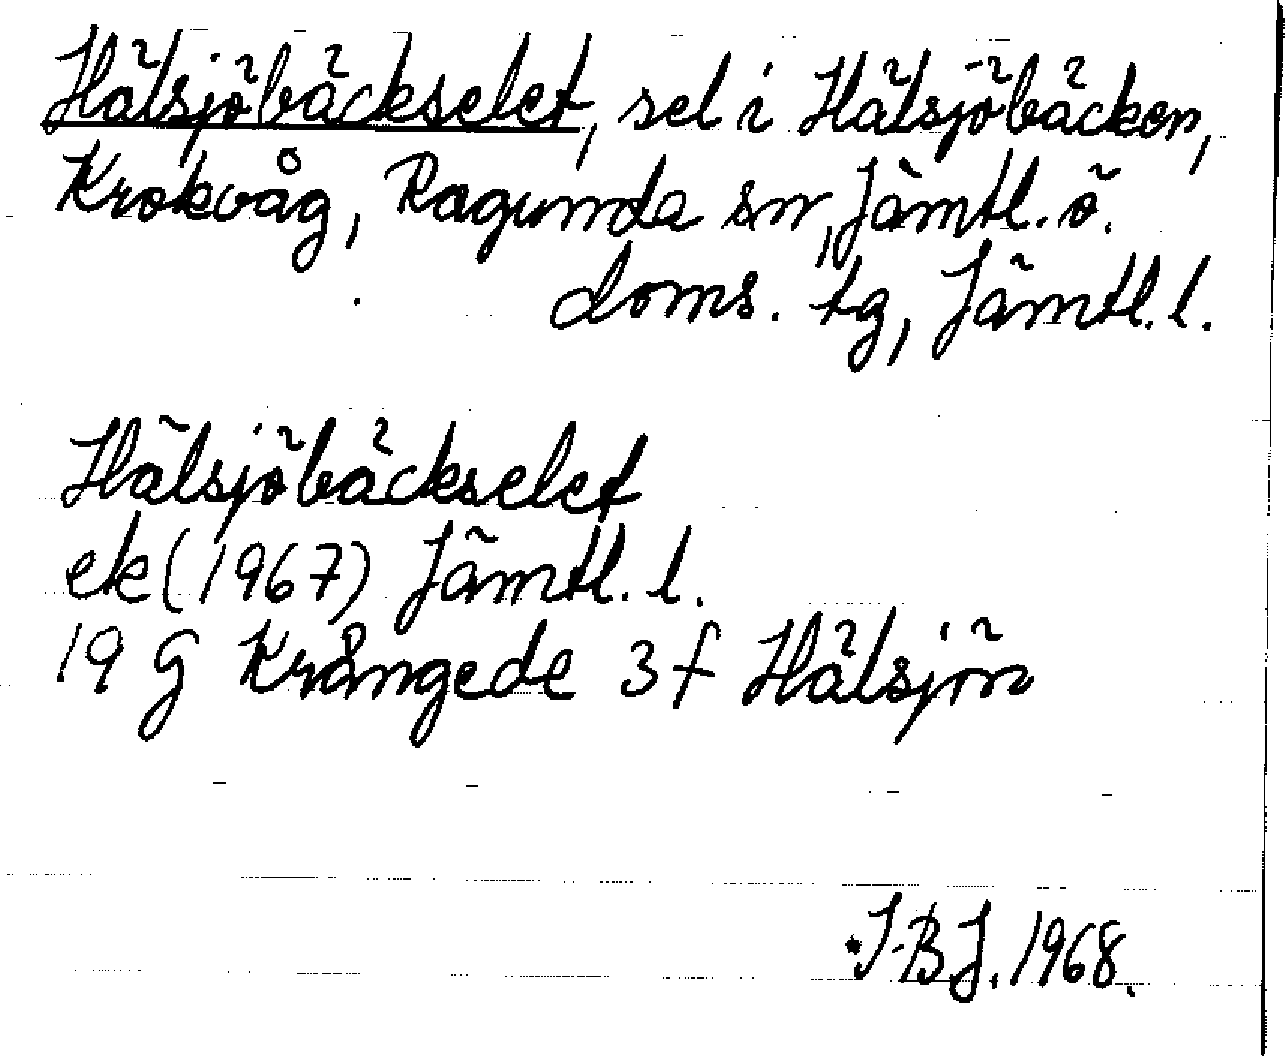 Hälsjöbäckselet, sel i Hälsjöbäcken,
Krokvåg, Ragunda sn, Jämtl. ö.
doms. tg, Jämtl. l.
Hälsjöbäckselet
ek (1967) Jämtl. l.
19 G Krångede 3 f Hälsjön
I-BJ. 1968.